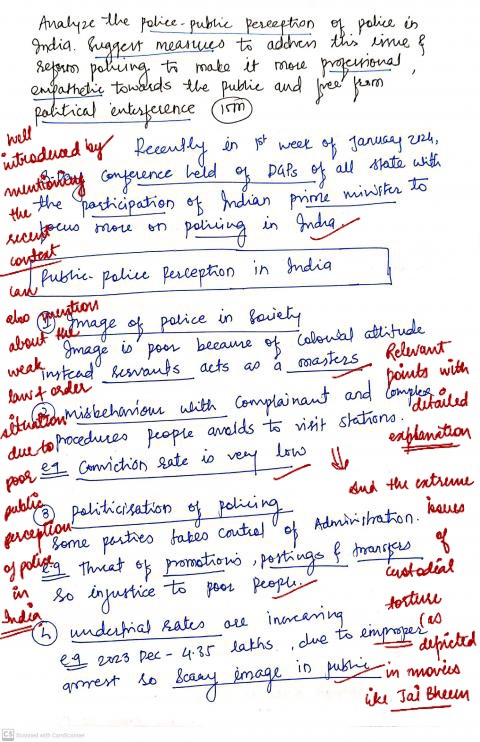 Analyze the police-public perception of police in
India. Suggest measures to address this issue &
reform policing to make it more professional,
empathetic towards the public and free from
political interference (15m)
Well
introduced by
mentioning
the
recent
context
can
also mention
about the
weak
law & order
situation
due to
poor
public
perception
of police
in
India
Recently in 1st week of January 2024,
3-Day Conference held of DGPs of all state with
the participation of Indian prime minister to
focus more on policing in India.
Public-police Perception in India
① Image of police in Society
Image is poor because of colonial attitude
instead servants acts as a masters
② misbehaviour with Complainant and Complex
procedures people avoids to visit stations.
e.g Conviction rate is very low
③ politicisation of policing
Some parties takes control of Administration.
e.g Threat of promotions, postings & transfers
so injustice to poor people.
④ undertrial rates are increasing
e.g 2023 Dec - 4.35 lakhs, due to improper
arrest so Scary image in public
Relevant
points with
detailed
explanation
And the extreme
issues
of
custodial
torture
(as
depicted
in movies
like Jai Bheem
CS Scanned with CamScanner